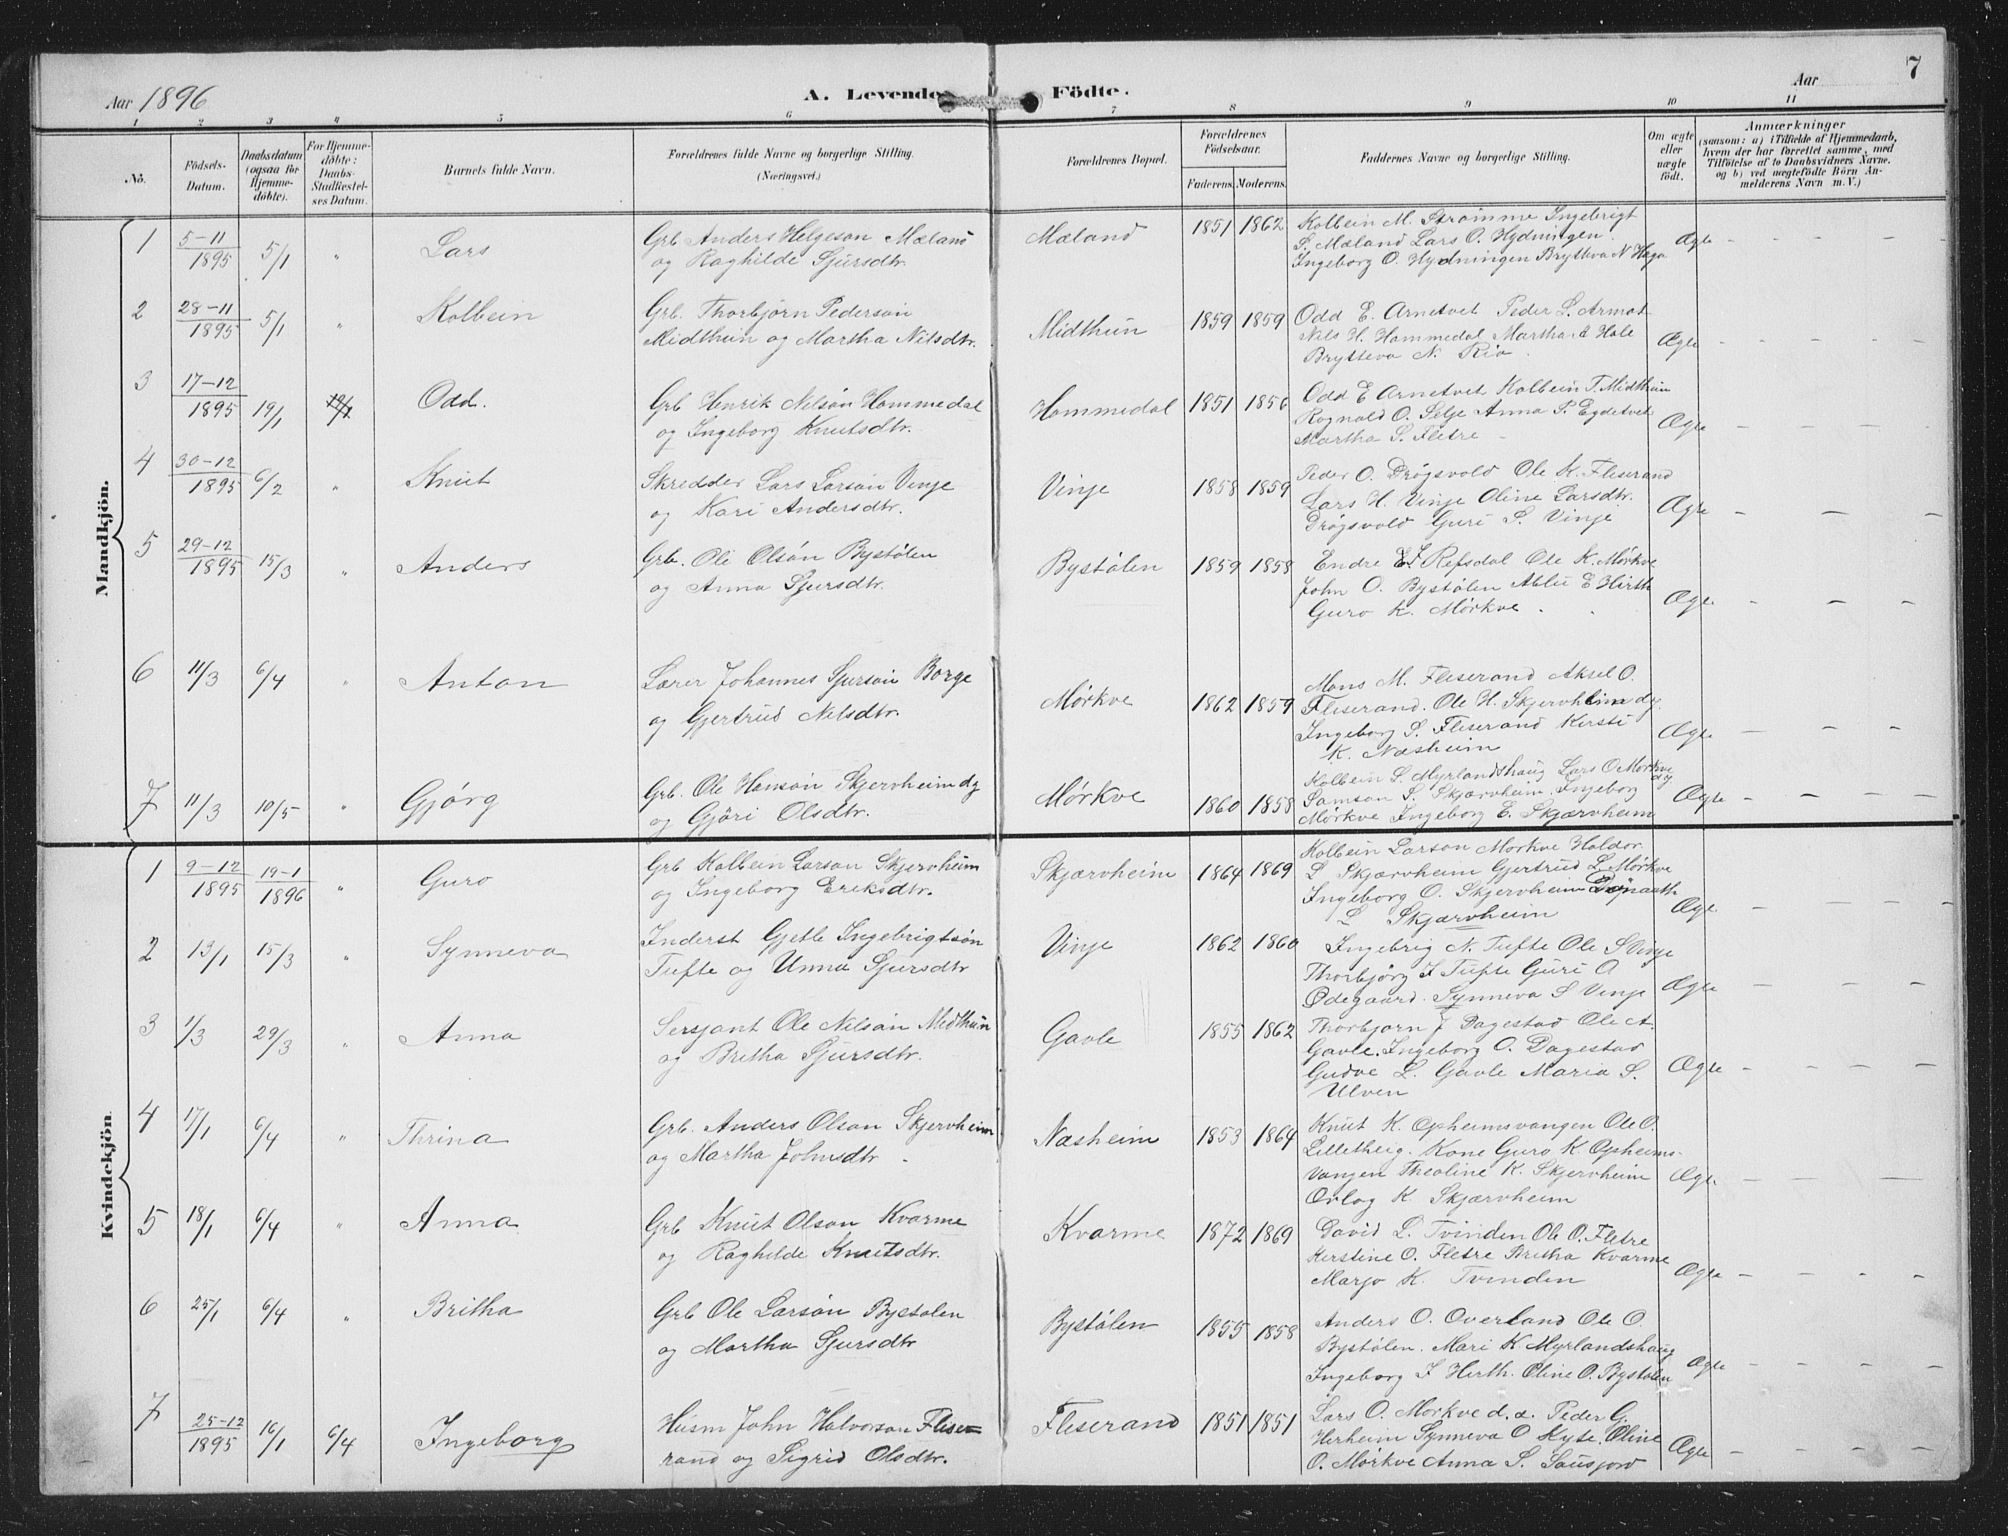 Aar 1896
A. Levende Födte.
Aar
7
1 2 3 4 5 6 7 8 9 10 11
No.
Födsels-Datum.
Daabsdatum (ogsaa for Hjemmedöbte).
For Hjemmedöbte: Daabs-Stadfæstelses Datum.
Barnets fulde Navn.
Forældrenes fulde Navne og borgerlige Stilling. (Næringsvei.)
Forældrenes Bopæl.
Forældrenes Födselsaar.
Faderens. Moderens.
Faddernes Navne og borgerlige Stilling.
Om ægte eller uægte födt.
Anmærkninger
(saasom: a) i Tilfælde af Hjemmedaab, hvem der har forrettet samme, med Tilföielse af to Daabsvidners Navne. og b) ved uægtefödte Börn Anmelderens Navn m. V.)
Mandkjön.
1 5-11 1895 5/1 " Lars
Grb Anders Helgeson Mæland
og Raghilde Sjursdtr.
Mæland 1851 1862
Kolbein M. Strømme Ingebrigt
S. Mæland Lars O. Hydningen.
Ingeborg O. Hydningen Brytteva N Haga
Ægte
2 28-11 1895 5/1 " Kolbein
Grb. Thorbjørn Pederson
Midthun og Martha Nilsdtr.
Midthun 1859 1859
Odd E. Arnetvet Peder S. Armot
Nils H. Hommedal Martha Hole
Brytteva N. Rio.
Ægte
3 17-12 1895 19/1 19/1 Odd.
Grb Henrik Nilsøn Hommedal
og Ingeborg Knutsdtr.
Hommedal 1851 1856
Odd E Arnetvet Kolbein T. Midthun
Rognald O. Selje Anna P. Egdetvet
Martha S. Fletre
Ægte
4 30-12 1895 6/2 " Knut
Skredder Lars Larsøn Vinje
og Kari Andersdtr.
Vinje 1858 1859
Peder O. Drøgsvold Ole K. Fliserand
Lars H. Vinje Oline Larsdtr.
Drøgsvold Guri S. Vinje
Ægte
5 29-12 1895 15/3 " Anders
Grb. Ole Olsøn Bystølen
og Anna Sjursdtr.
Bystølen 1859 1858
Endre E Refsdal Ole K. Mørkve
John O. Bystølen Ablu E Hirth
Guro K. Mørkve.
Ægte
6 11/3 6/4 " Anton
Lærer Johannes Sjursøn Borge
og Gjertrud Nilsdtr.
Mørkve 1862 1859
Mons M. Fliserand Aksel O.
Fliserand. Ole H. Skjervheim dy
Ingeborg S. Fliserand Kersti
K. Næsheim
Ægte
7 11/3 10/5 " Gjørg
Grb. Ole Hansøn Skjervheim dy
og Gjøri Olsdtr.
Mørkve 1860 1858
Kolbein L. Myrlandshaug Lars O Mørkve dy
Samson S. Skjærvheim. Ingeborg
Mørkve Ingeborg E. Skjærvheim
Ægte
Kvindekjön.
1 9-12 1895 19-1 1896 " Guro
Grb Kolbein Larson Skjervheim
og Ingeborg Eriksdtr.
Skjærvheim 1864 1869
Kolbein Larson Mørkve Haldor
L Skjærvheim Gjertrud L Mørkve
Ingeborg O. Skjervheim
L Skjærvheim
Ægte
2 13/1 15/3 " Synneva
Inderst Gjetle Ingebrigtsøn
Tufte og Unna Sjursdtr
Vinje 1862 1860
Ingebrig N. Tufte Ole S Vinje
Thorbjørg I Tufte Guri O
Ødegaard. Synneva S Vinje
Ægte
3 1/3 29/3 Anna
Sersjant Ole Nilsøn Midthun
og Britha Sjursdtr.
Gavle 1855 1862
Thorbjørn J Dagestad Ole A.
Gavle. Ingeborg O. Dagestad
Gudve L. Gavle Maria S.
Ulven
Ægte
4 17/1 6/4 " Thrina
Grb. Anders Olson Skjervheim
og Martha Johnsdtr.
Næsheim 1853 1864
Knut K. Opheimsvangen Ole O.
Lilletheig. Kone Guro K Opheims-
vangen Theoline K. Skjervheim
Ovlog K. Skjærvheim
Ægte
5 18/1 6/4 " Anna
Grb Knut Olson Kvarme
og Raghilde Knutsdtr.
Kvarme 1872 1869
David L. Tvinden Ole O. Fletre
Kerstine O. Fletre Britha Kvarme
Marjo K. Tvinden
Ægte
6 25/1 6/4 " Britha
Grb Ole Larsøn Bystølen
og Martha Sjursdtr
Bystølen 1855 1858
Anders O. Overland Ole O.
Bystølen. Mari K Myrlandshaug
Ingeborg I Hirth. Oline O. Bystølen
Ægte
7 25-12 1895 16/1 6/4 Ingeborg
Husm John Halvorson Flise-
rand og Sigrid Olsdtr.
Fliserand 1851 1851
Lars O. Mørkve d.æ. Peder G.
Herheim Synneva O Kyte. Oline
O. Mørkve Anna S. Sausjord
Ægte